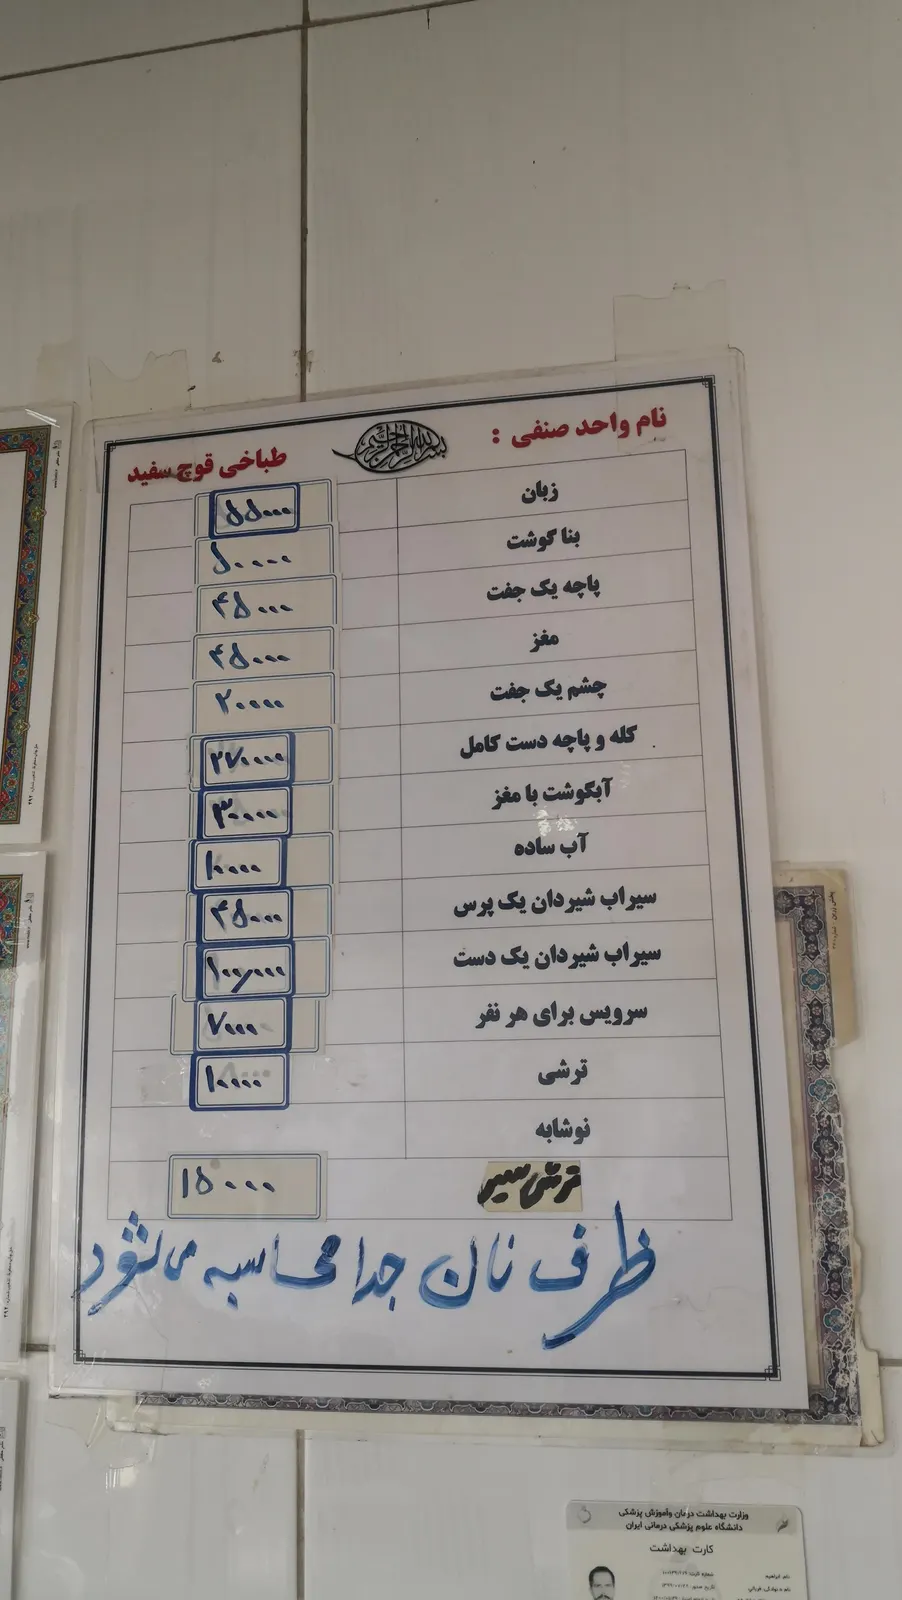 نام واحد صنفی :
بسم الله الرحمن الرحیم
طباخی قوچ سفید
زبان ۵۵۰۰۰
بنا گوشت ۵۰۰۰۰
پاچه یک جفت ۴۵۰۰۰
مغز ۴۵۰۰۰
چشم یک جفت ۲۰۰۰۰
کله و پاچه دست کامل ۲۷۰۰۰۰
آبگوشت با مغز ۳۰۰۰۰
آب ساده ۱۰۰۰۰
سیراب شیردان یک پرس ۴۵۰۰۰
سیراب شیردان یک دست ۱۰۰/۰۰۰
سرویس برای هر نفر ۷۰۰۰
ترشی ۱۰۰۰۰
نوشابه
ترشی سیر ۱۵۰۰۰
ظرف نان جدا محاسبه می شود
وزارت بهداشت درمان وآموزش پزشکی
دانشگاه علوم پزشکی درمانی ایران
کارت بهداشت